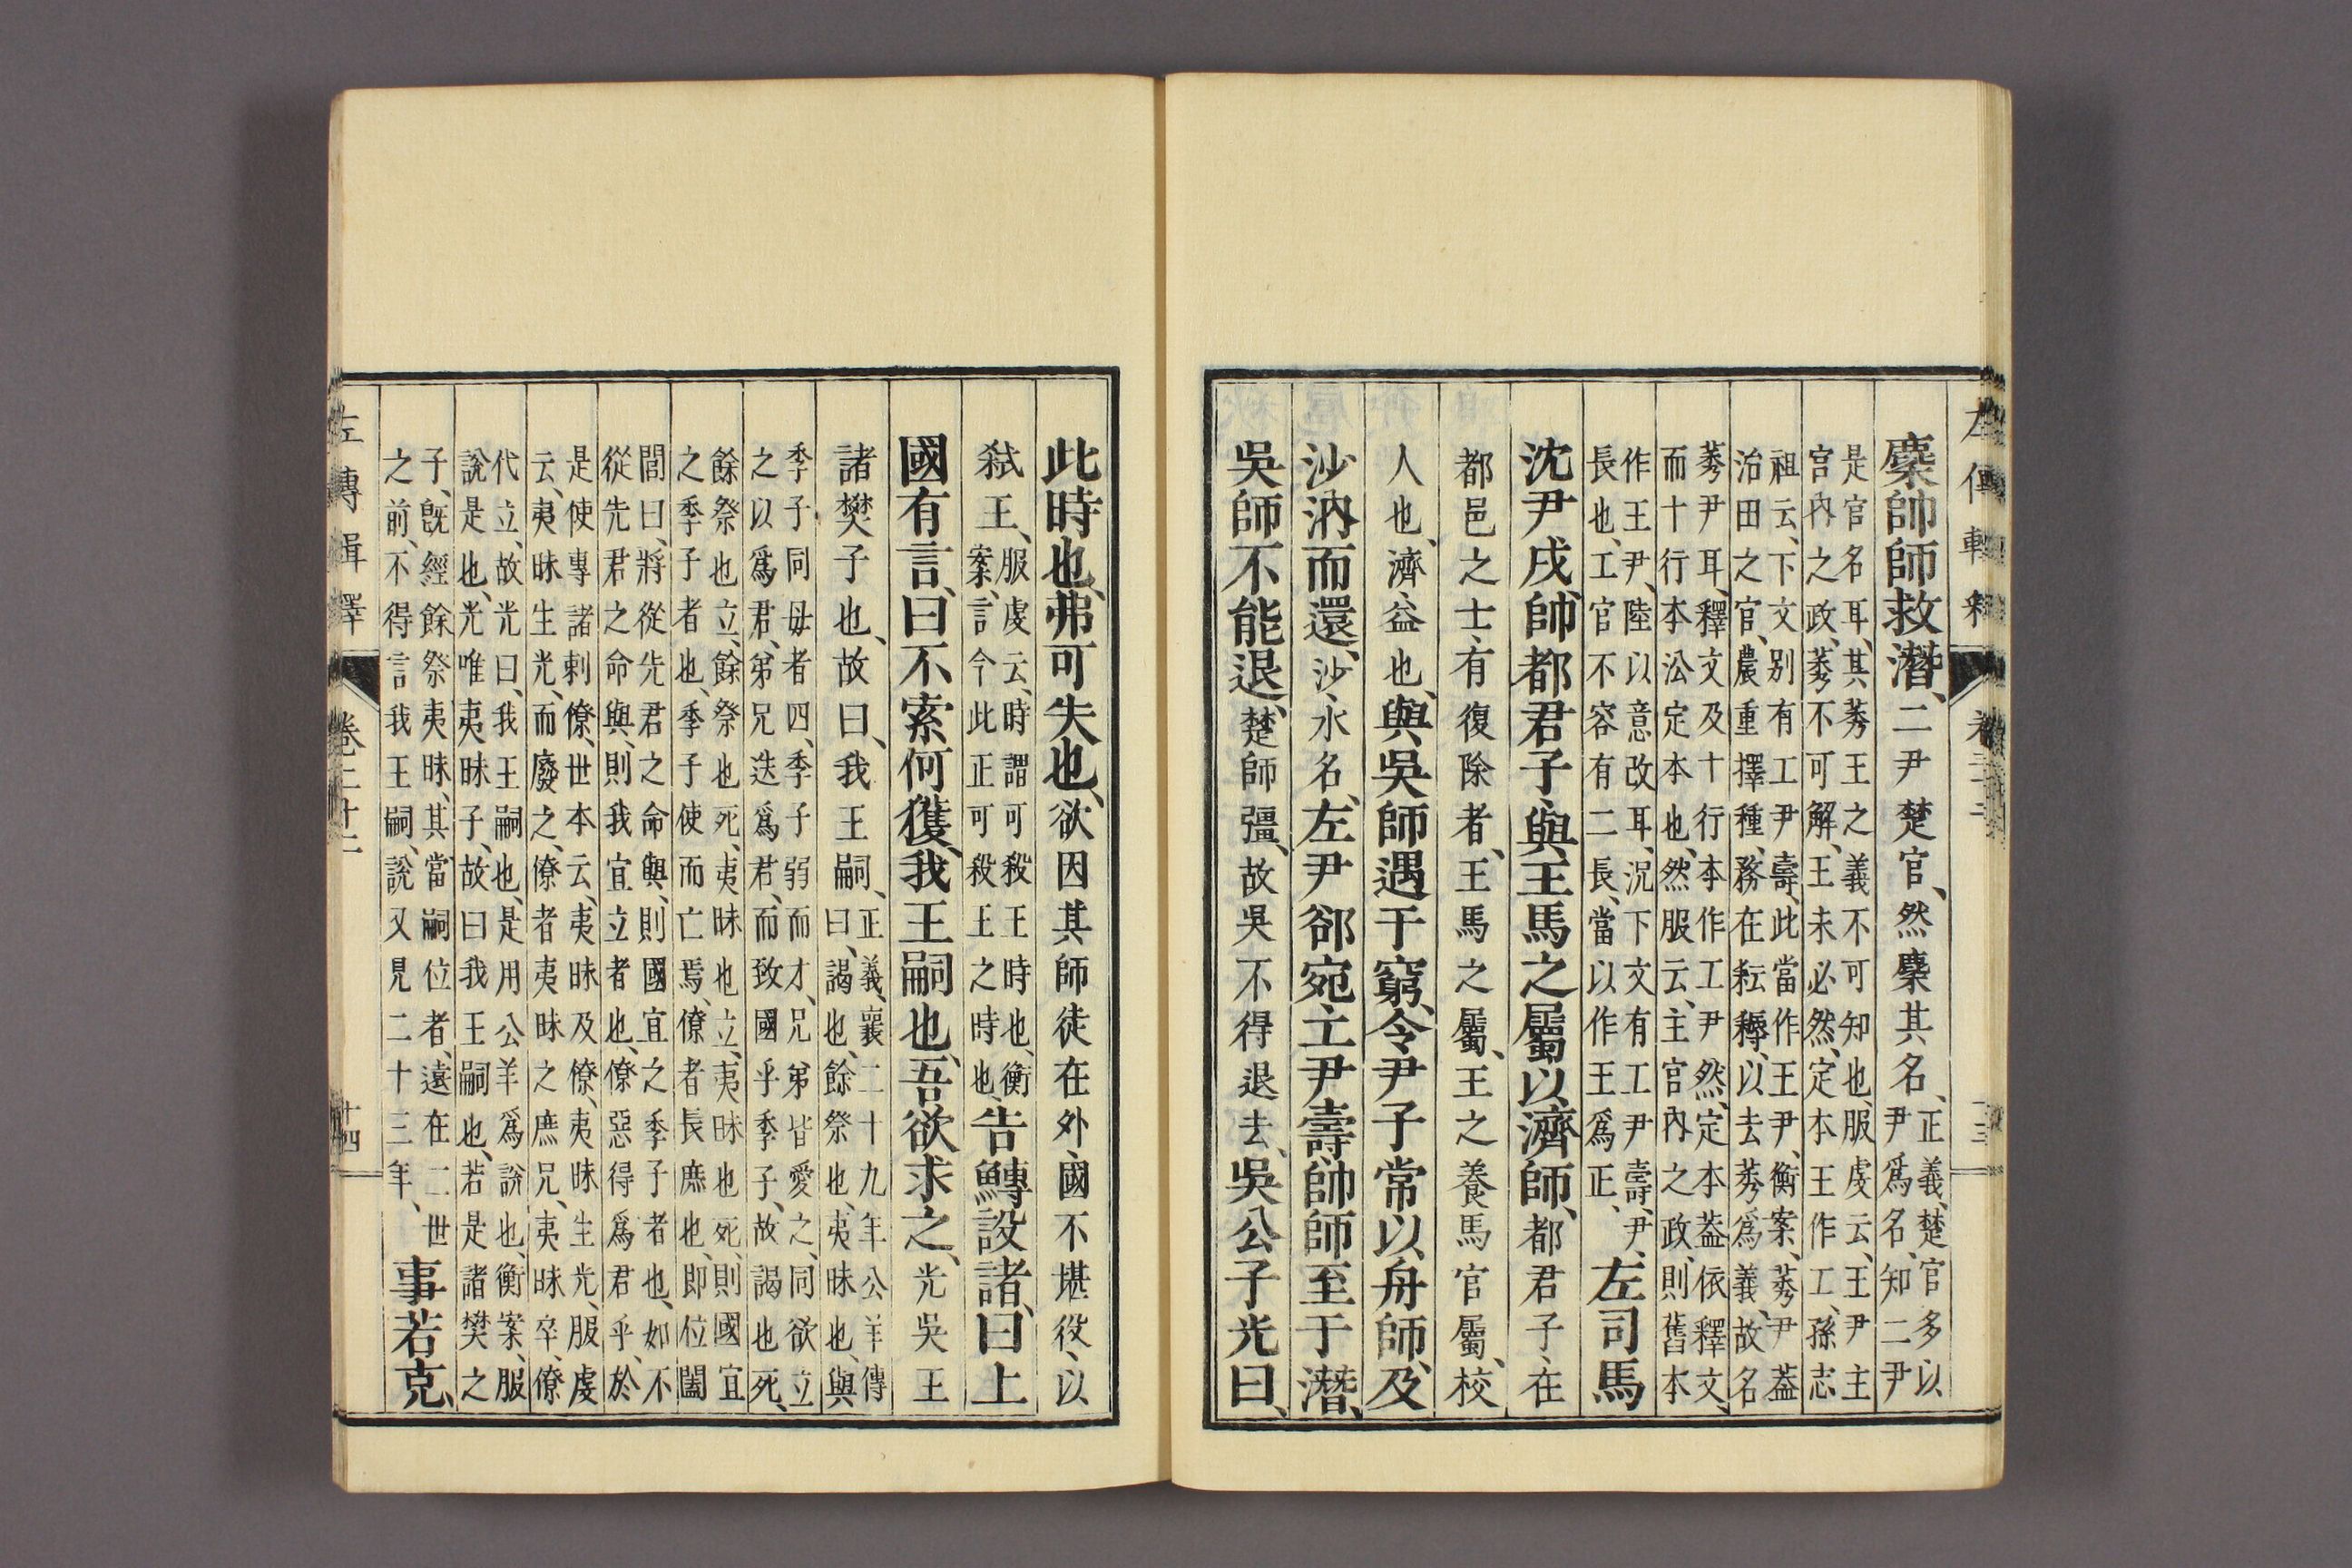 左傳輯釋 卷二十二 十三
麇帥師救潛、二尹楚官、然麇其名、正義、楚官多以
尹爲名、知二尹
是官名耳、其莠王之義不可知也、服虔云、王尹主
宮內之政、莠不可解、王未必然、定本王作工、孫志
祖云、下文別有工尹壽、此當作王尹、衡案、莠尹蓋
治田之官、農重擇種、務在耘耨、以去莠爲義、故名
莠尹耳、釋文及十行本作工尹然、定本蓋依釋文、
而十行本㳂定本也、然服云、主官內之政、則舊本
作王尹、陸以意改耳、況下文有工尹壽、尹、
長也、工官不容有二長、當以作王爲正、左司馬
沈尹戌、帥都君子、與王馬之屬以濟師、都君子、在
都邑之士、有復除者、王馬之屬、王之養馬官屬、校
人也、濟、益也、與吳師遇于窮、令尹子常以舟師、及
沙汭而還、沙、水名、左尹郤宛、工尹壽、帥師至于潛、
吳師不能退、楚師彊、故吳不得退去、吳公子光曰、
此時也、弗可失也、欲因其師徒在外、國不堪役、以
弒王、服虔云、時謂可殺王時也、衡
案、言今此正可殺王之時也、告鱄設諸、曰上
國有言、曰不索何獲、我王嗣也、吾欲求之、光吳王
諸樊子也、故曰、我王嗣、正義、襄二十九年公羊傳
曰、謁也、餘祭也、夷昧也、與
季子同母者四、季子弱而才、兄弟皆愛之、同欲立
之以爲君、弟兄迭爲君、而致國乎季子、故謁也死、
餘祭也立、餘祭也死、夷昧也立、夷昧也死、則國宜
之季子者也、季子使而亡焉、僚者長庶也、卽位闔
閭曰、將從先君之命與、則國宜之季子者也、如不
從先君之命與、則我宜立者也、僚惡得爲君乎、於
是使專諸刺僚、世本云、夷昧及僚、夷昧生光、服虔
云、夷昧生光、而廢之、僚者夷昧之庶兄、夷昧卒、僚
代立、故光曰、我王嗣也、是用公羊爲說也、衡案、服
說是也、光唯夷昧子、故曰我王嗣也、若是諸樊之
子、旣經餘祭夷昧、其當嗣位者、遠在二世
之前、不得言我王嗣、說又見二十三年、事若克、
左傳輯釋 卷二十二 十四